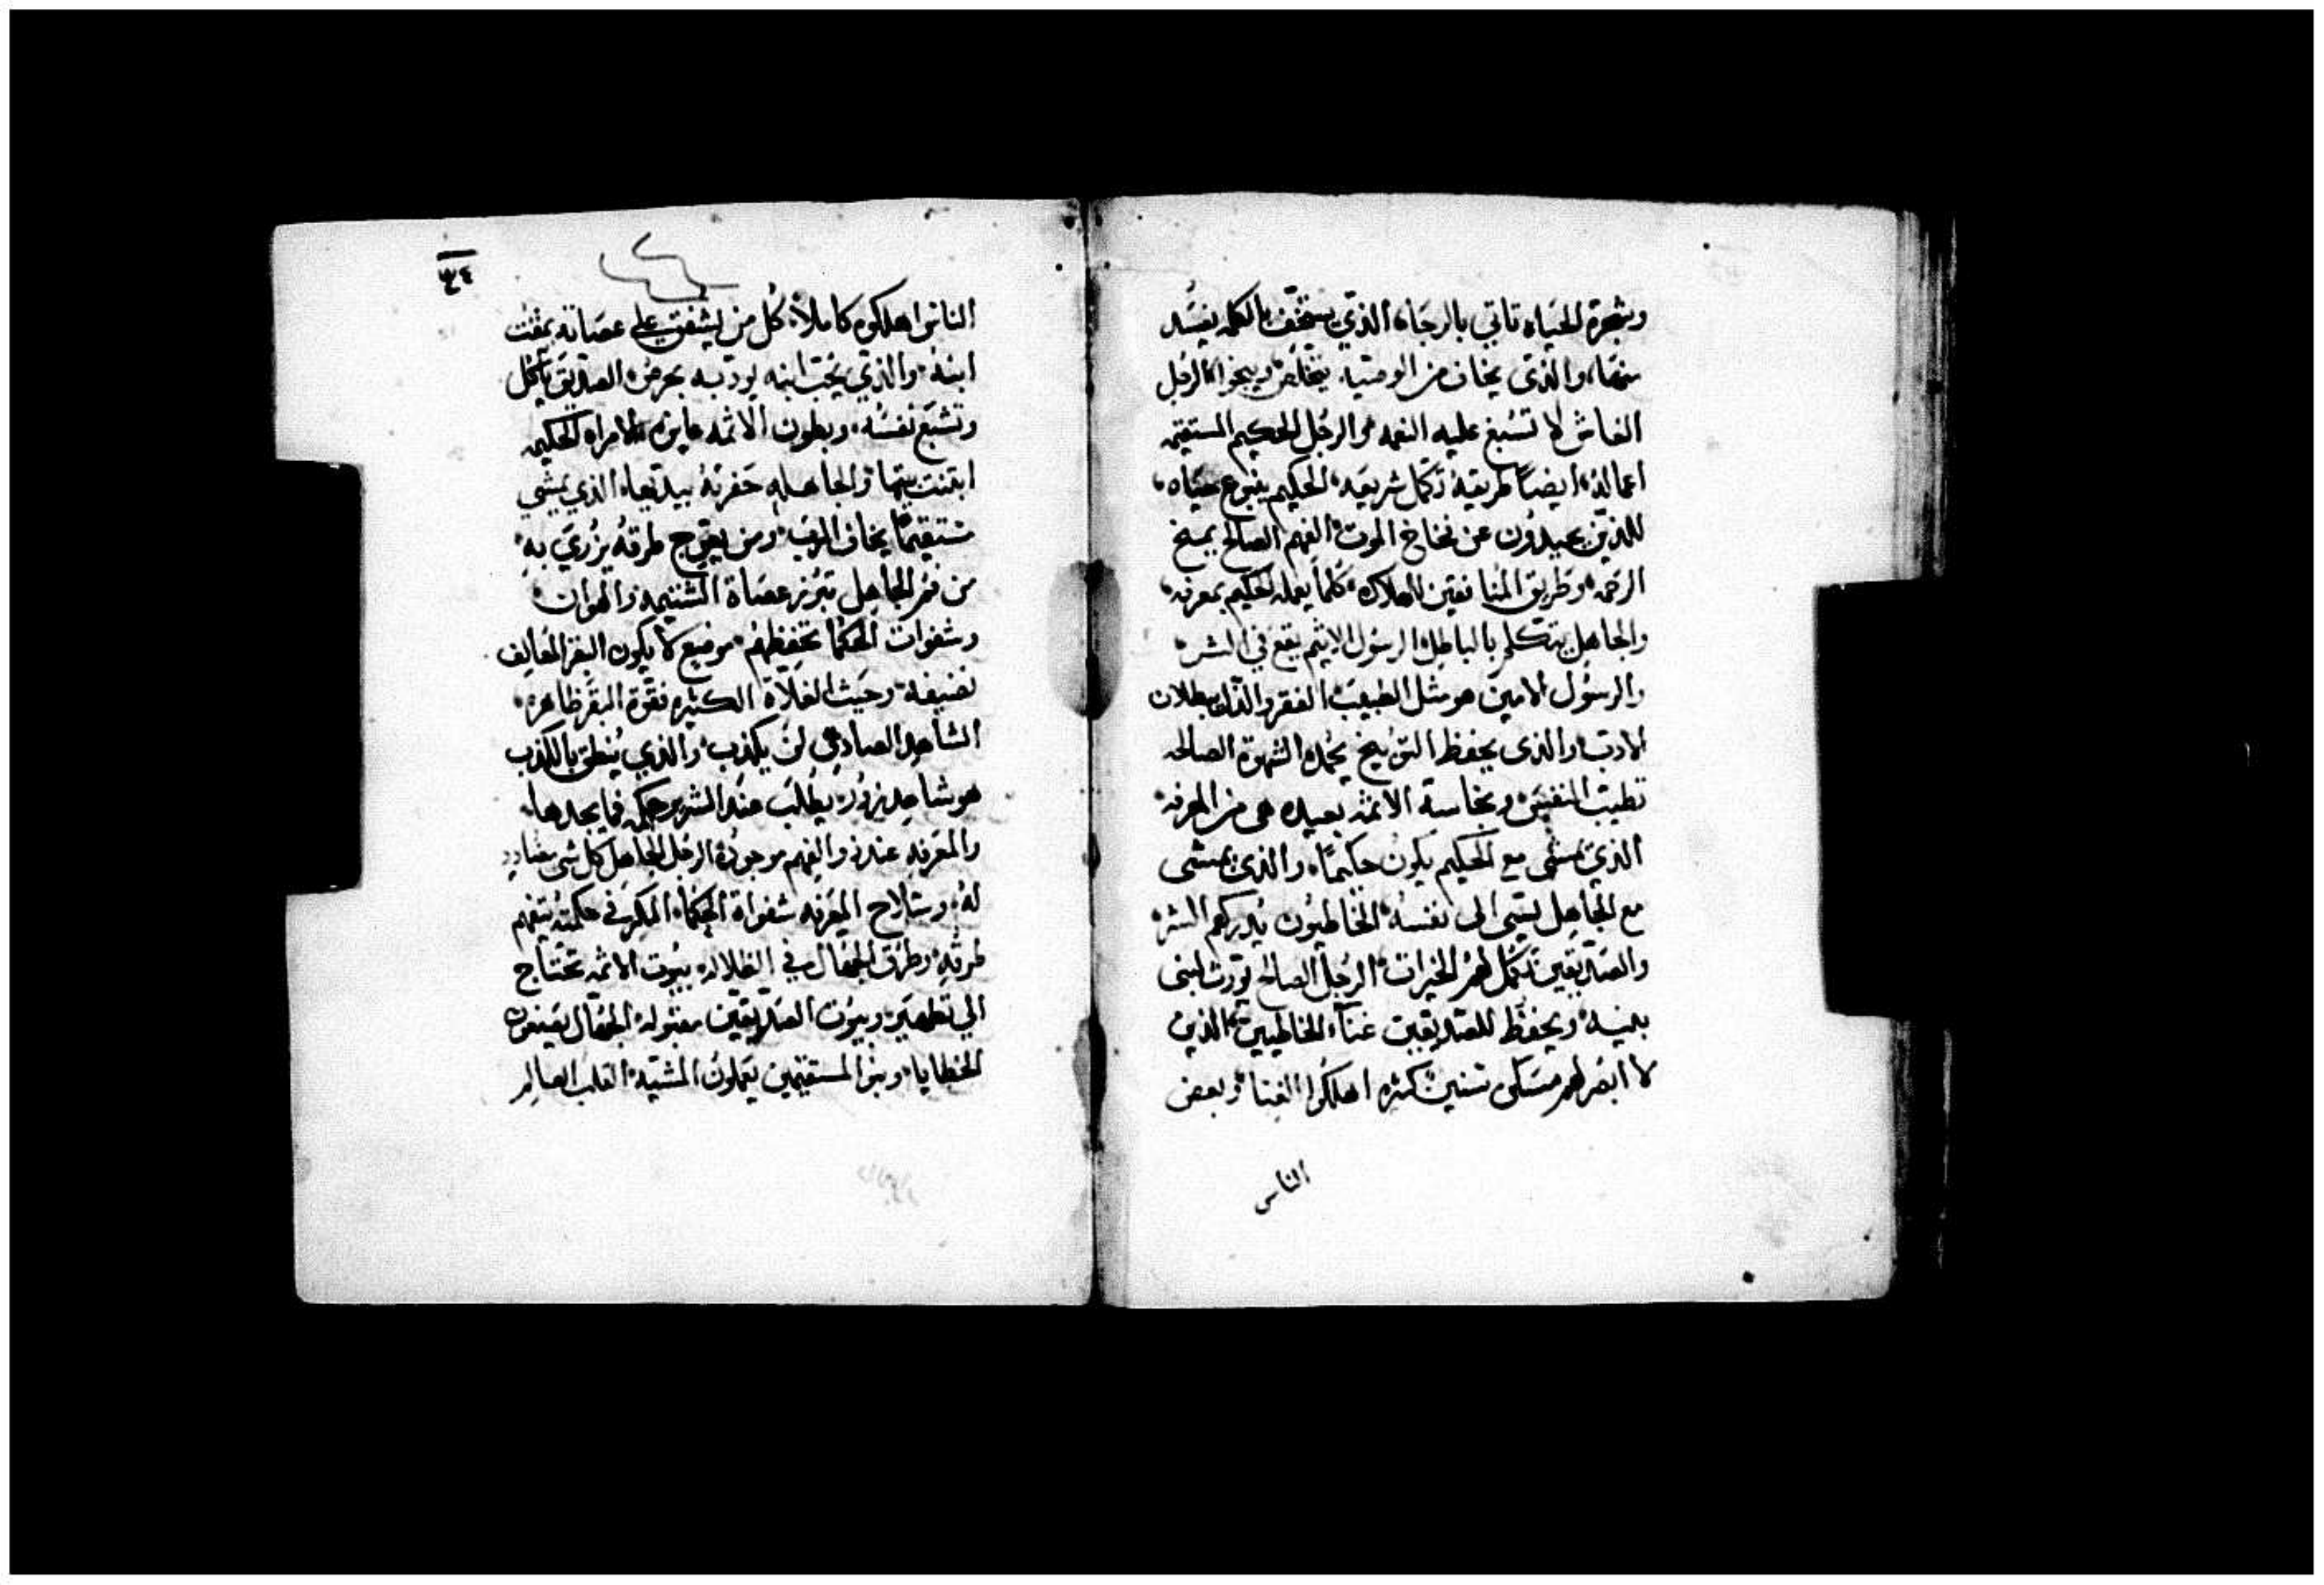 وشجرة الحياه تاتي بالرجاء الذي يستخف بالكلمه يفسد
منها، والذي يخاف من الوصيه يتخلص وينجوا الرجل
الغاش لا تسبغ عليه النعمه والرجل الحكيم المستقيمه
اعماله ايضاً طريقه تكمل شريعه الحكيم ينبوع حياه
للذين يحيدون عن فخاخ الموت الفهم الصالح يمنح
الرحمه وطريق المنافقين الهلاك كلما يعمله الحكيم بمعرفه
والجاهل يتكلم بالباطل الرسول الاثيم يقع في الشر
والرسول الامين هو مثل الطبيب الفقر والذل يبطلان
الادب والذي يحفظ التوبيخ يحمد الشهوة الصالحه
تطيب النفس ونجاسة الاثمه بعيده هي من المعرفه
الذي يمشي مع الحكيم يكون حكيماً، والذي يمشي
مع الجاهل يسي الى نفسه الخاطيون يدركهم الشر
والصديقين تكمل لهم الخيرات الرجل الصالح يورث لبني
بنيه ويحفظ للصديقين غناء الخاطيين الذين
لا ابقر لهم سنين كثره اهلكوا الغنا وبعض
الناس
٣٤
الناس اهلكوه كاملاً، كل من يشفق على عصاته يمقت
ابنه والذي يحب ابنه يودبه بحرص الصديق ياكل
وتشبع نفسه، وبطون الاثمه الامراه الحكيمه
ابتنت بيتها والجاهله حفرته بيديها الذي يمشي
مستقيماً يخاف الرب ومن يعوج طرقه يزري به
من فم الجاهل تبرز عصاة الشتيمه والهوان
وشفوات الحكما تحفظهم موضع لا يكون البقر المعالف
نضيفه وحيث الغلاة الكثيره فقوة البقر ظاهره
الشاهد الصادق لن يكذب والذي ينطق بالكذب
هو شاهد زور يطلب عند الشرير حكمه فما يجدها
والمعرفه عند ذو الفهم موجوده الرجل الجاهل كل شي مضادد
له وسلاح المعرفه شفواة الحكما المكر في حكمته يتفهم
طرقه وطرق الجهال في الضلاله بيوت الاثمه تحتاج
الي تطهير وبيوت الصديقين مقبوله الجهال يصنعون
الخطايا وبنو المستقيمين يعملون المشيه القلب العالم